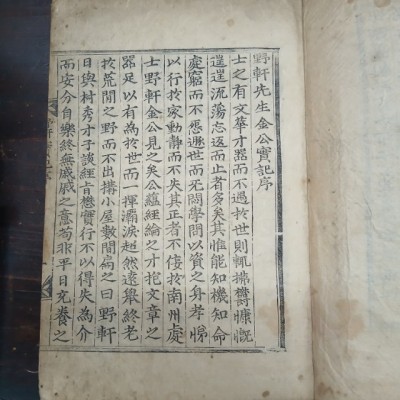 野軒先生金公實記序
士之有文華才器而不遇扵世則輒拂欝慷慨
遑遑流蕩忘返而止者多矣其惟能知機知命
處窮而不遯世而无悶學問以資之身孝悌
以行扵家動靜而不失其正者不侫扵南州處
士野軒金公見之矣公蘊經綸之才抱文章之
器足以有為扵世而一揮灞淚超然遠擧終老
扵荒閒之野而不出搆小屋數間扁之曰野軒
日與村秀才子談經旨懋實行不以得失為介
而安分自樂終無戚戚之意苟非平日充養之